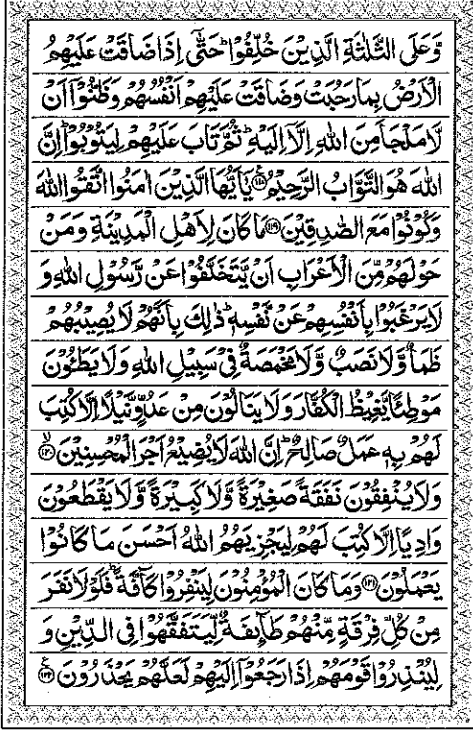 وَّعَلَى الثَّلٰثَةِ الَّذِيْنَ خُلِّفُوْا ؕ حَتّٰۤى اِذَا ضَاقَتْ عَلَيْهِمُ
الْاَرْضُ بِمَا رَحُبَتْ وَضَاقَتْ عَلَيْهِمْ اَنْفُسُهُمْ وَظَنُّوْۤا اَنْ
لَّا مَلْجَاَ مِنَ اللّٰهِ اِلَّاۤ اِلَيْهِ ؕ ثُمَّ تَابَ عَلَيْهِمْ لِيَتُوْبُوْا ؕ اِنَّ
اللّٰهَ هُوَ التَّوَّابُ الرَّحِيْمُ ۝۱۱۸ يٰۤاَيُّهَا الَّذِيْنَ اٰمَنُوا اتَّقُوا اللّٰهَ
وَكُوْنُوْا مَعَ الصّٰدِقِيْنَ ۝۱۱۹ مَا كَانَ لِاَهْلِ الْمَدِيْنَةِ وَمَنْ
حَوْلَهُمْ مِّنَ الْاَعْرَابِ اَنْ يَّتَخَلَّفُوْا عَنْ رَّسُوْلِ اللّٰهِ وَ
لَا يَرْغَبُوْا بِاَنْفُسِهِمْ عَنْ نَّفْسِهٖ ؕ ذٰلِكَ بِاَنَّهُمْ لَا يُصِيْبُهُمْ
ظَمَاٌ وَّلَا نَصَبٌ وَّلَا مَخْمَصَةٌ فِيْ سَبِيْلِ اللّٰهِ وَلَا يَطَئُوْنَ
مَوْطِئًا يَّغِيْظُ الْكُفَّارَ وَلَا يَنَالُوْنَ مِنْ عَدُوٍّ نَّيْلًا اِلَّا كُتِبَ
لَهُمْ بِهٖ عَمَلٌ صَالِحٌ ؕ اِنَّ اللّٰهَ لَا يُضِيْعُ اَجْرَ الْمُحْسِنِيْنَ ۝۱۲۰ۙ
وَلَا يُنْفِقُوْنَ نَفَقَةً صَغِيْرَةً وَّلَا كَبِيْرَةً وَّلَا يَقْطَعُوْنَ
وَادِيًا اِلَّا كُتِبَ لَهُمْ لِيَجْزِيَهُمُ اللّٰهُ اَحْسَنَ مَا كَانُوْا
يَعْمَلُوْنَ ۝۱۲۱ وَمَا كَانَ الْمُؤْمِنُوْنَ لِيَنْفِرُوْا كَآفَّةً ؕ فَلَوْلَا نَفَرَ
مِنْ كُلِّ فِرْقَةٍ مِّنْهُمْ طَآئِفَةٌ لِّيَتَفَقَّهُوْا فِي الدِّيْنِ وَ
لِيُنْذِرُوْا قَوْمَهُمْ اِذَا رَجَعُوْۤا اِلَيْهِمْ لَعَلَّهُمْ يَحْذَرُوْنَ ۝۱۲۲ع